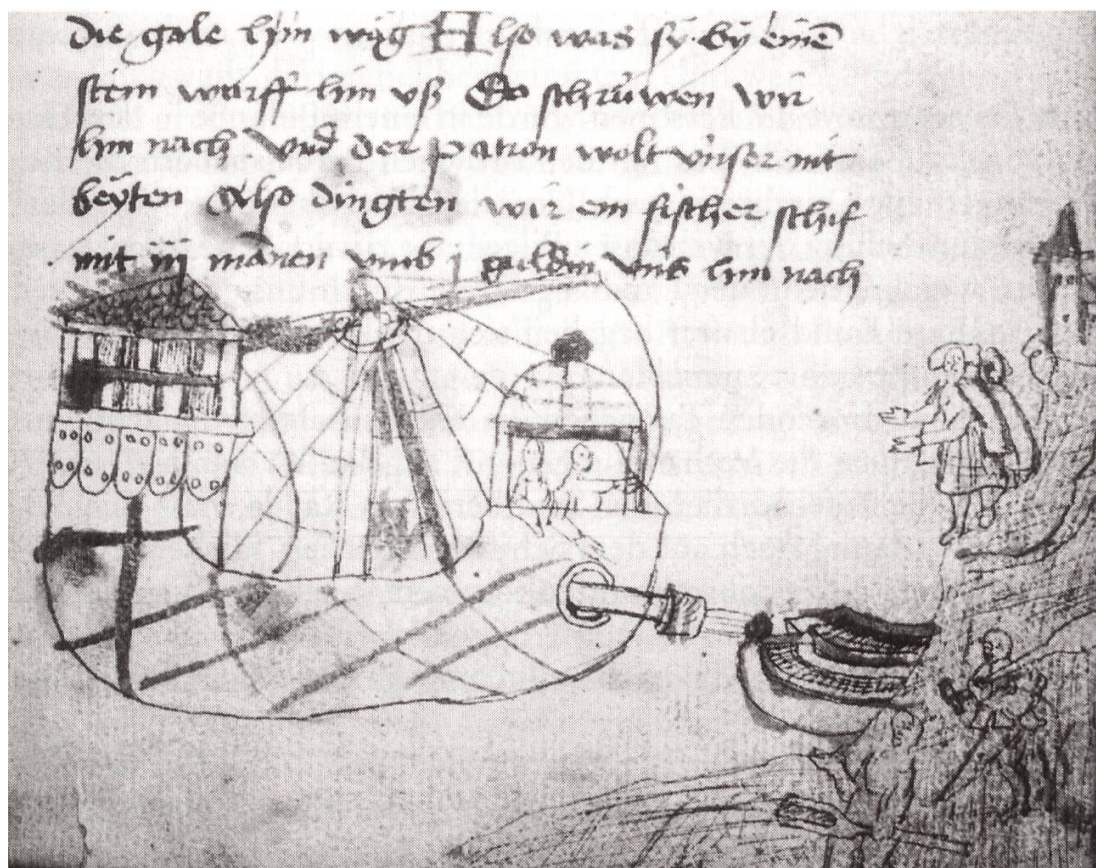 die gale hin wäg Also was sÿ bÿ eine͂
stein warff hin uß Do schrüwen wir
hin nach Und der patron wolt unser nit
beÿten Also dingten wir ein fischer schif
mit iij manen umb j guldin uns hin nach